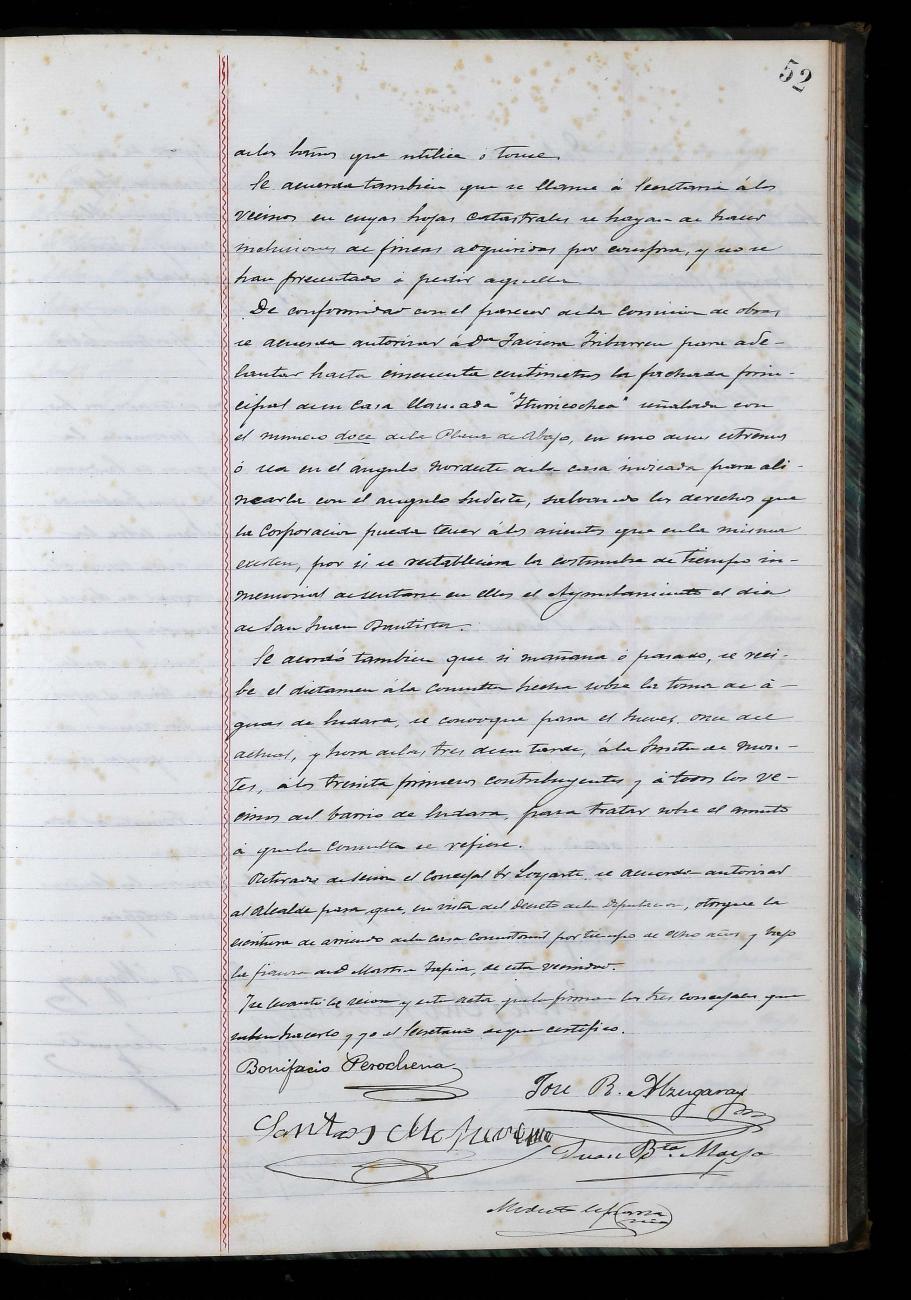 52
de los baños que utilice ó tome.
Se acuerda tambien que se llame á Secretaria á los
vecinos en cuyas hojas catastrales se hayan de hacer
inclusiones de fincas adquiridas por compra, y no se
han presentado á pedir aquella
De conformidad con el parecer de la Comision de obras
se acuerda autorizar á Dª Javiera Iribarren para ade-
lantar hasta cincuenta centimetros la fachada prin-
cipal de su casa llamada "Iturricochea" señalada con
el numero doce de la Plaza de Abajo, en uno de sus estremos
ó sea en el ángulo Nordeste de la casa indicada para ali-
nearla con el angulo Sudeste, salvando los derechos que
la Corporacion pueda tener á los asientos que en la misma
existen, por si se restableciera la costumbre de tiempo in-
memorial de sentarse en ellos el Ayuntamiento el dia
de San Juan Bautista.
Se acordó tambien que si mañana ó pasado, se reci-
be el dictamen á la consulta hecha sobre la toma de á-
guas de, se convoque para el Jueves once del
actual, y hora de las tres de su tarde, á la Junta de Mon-
tes, á los treinta primeros contribuyentes y á todos los ve-
cinos del barrio de, para tratar sobre el asunto
á que la consulta se refiere.
Retirado de sesion el Concejal Sr Loyarte se acuerda autorizar
al Alcalde para que, en vista del Decreto de la Diputacion, otorgue la
escritura de arriendo de la casa Consistorial por tiempo de ocho años y bajo
la fianza de D., de esta vecindad.
Se levantó la sesion y esta acta que la firman los tres concejales que
saben hacerlo y yo el Secretario de que certifico.
Bonifacio Perochena
Jose R. Alzugaray
Santos
Juan Bta. Maya
Modesto